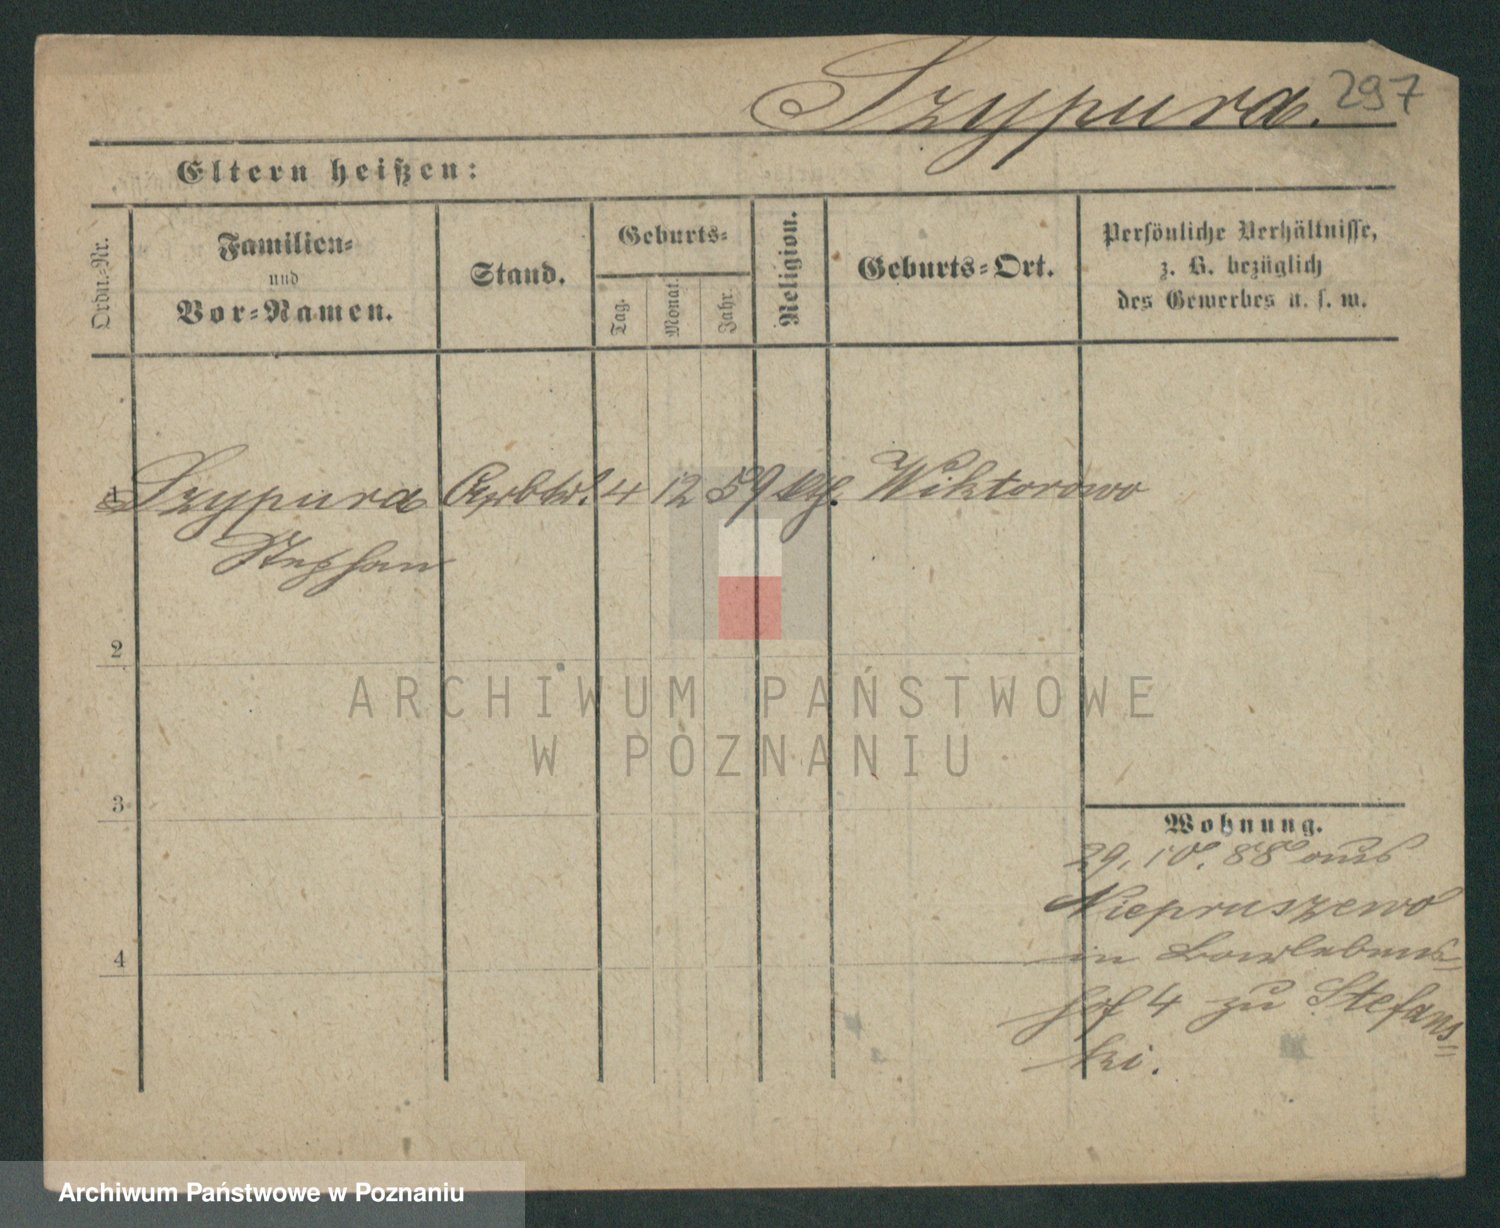 Szypura. 297
Eltern heißen:
Ordn.-Nr.
Familien-
und
Vor-Namen.
Stand.
Geburts-
Tag.
Monat.
Jahr.
Religion.
Geburts-Ort.
Persönliche Verhältnisse,
z. B. bezüglich
des Gewerbes u. s. w.
1 Szypura Arbtr. 4 12 59 kth. Wiktorowo
Stephan
2
3
4
Wohnung.
29. 10. 88 aus
Niepruszewo
in Bartlebens-
hof 4 zu Stefans-
ki.
ARCHIWUM PAŃSTWOWE
W POZNANIU
Archiwum Państwowe w Poznaniu